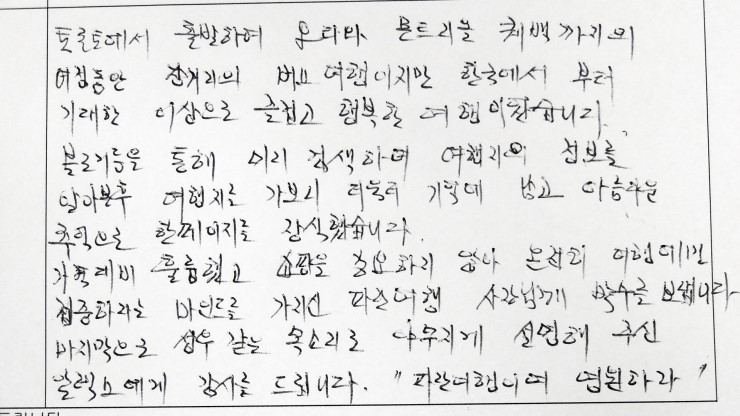 토론토에서 출발하여 오타와 몬트리올 퀘백까지의
여정동안 장거리의 버스여행이지만 한국에서 부터
기대한 이상으로 즐겁고 행복한 여행이었습니다.
블로거들을 통해 미리 검색하며 여행지의 정보를
알아본후 여행지를 가보니 더욱더 기억에 남고 아름다운
추억으로 한페이지를 장식했습니다.
가격대비 훌륭했고 쇼핑을 강요하지 않아 온전히 여행에만
집중하라는 마인드를 가지신 파란여행 사장님께 박수를 보냅니다
마지막으로 성우 같은 목소리로 야무지게 설명해 주신
알렉스에게 감사를 드립니다. "파란여행이여 영원하라"
드립니다